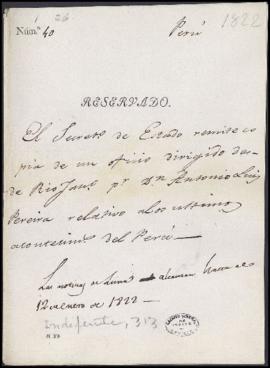 26
Núm.º 40
Perú
1822
RESERVADO.
El Secretº de Estado remite co
pia de un oficio dirigido des-
de Rio Janº pr Dn Antonio Luis
Pereira relativo a los ultimos
acontecimtos del Perú—
Las noticias de Lima alcanzan hasta el
12 de enero de 1822—
Indiferente, 313